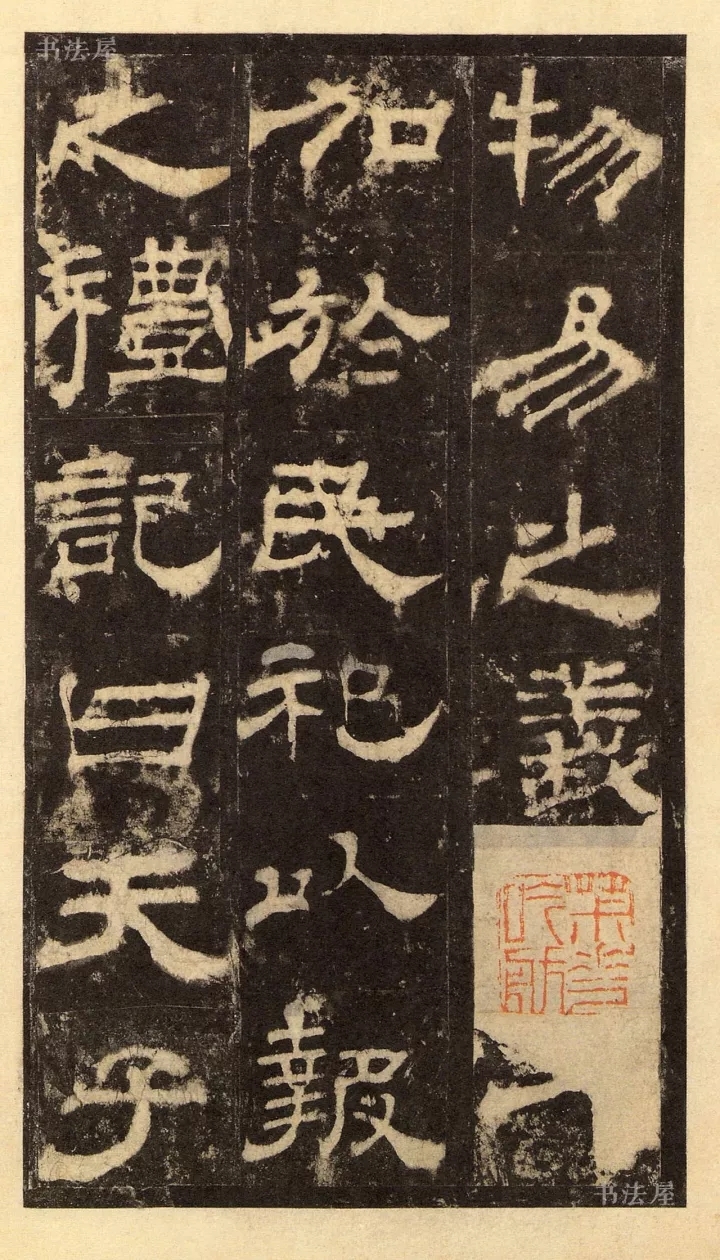 书法屋
物易之義
加於民祀以報
之禮記曰天子
书法屋